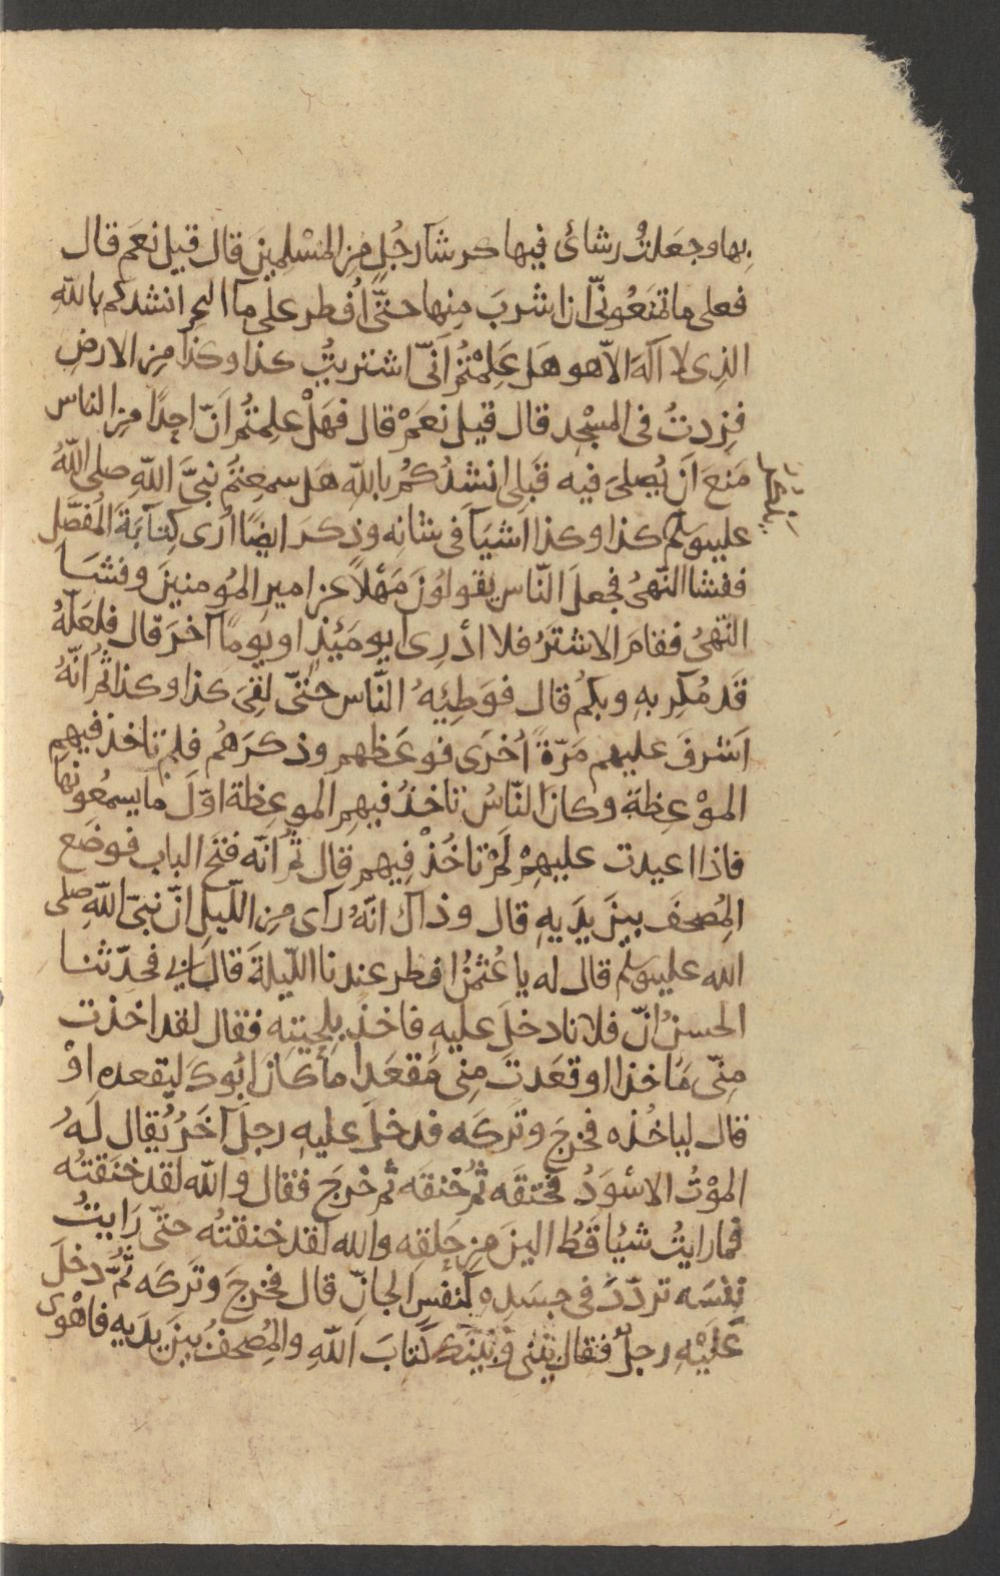 بها وجعلت رشائى فيها كرشآ رجُلٍ مِن المسْلمينَ قال قيل نعَم قال
فعلى ما تمنَعُونّى ان اشربَ مِنها حتّى اُفطر على مآ البحر انشدكم بالله
الذِى لا اله الاّ هو هَل عَلِمْتُم اَنّى اشتريتُ كذا وكذا مِن الارضِ
فزِدتُ فى المسْجِد قال قيل نعَمْ قال فهَلْ علِمتُم اَنّ احِدًا مِن الناس
مَنعَ اَن يُصلىَ فيه قَبلِى انشِدُكمُ بالله هَل سمعِتُم نبىَّ اللهِ صلى اللهُ
عليه وسلم كذا وكذا اشيَآ فى شانِه وذكرَ ايضًا ارَى كِتابَةَ المُفَصَّل
ففشا النّهىُ فجعلَ النّاس يقولوُنَ مَهْلاً عن امير المُومنينَ وفشَا
النّهىُ فقامَ الاشترُ فلا ادْرِى ايومَئِذٍ او يومًا آخرَ قال فلعَلّهُ
قَد مُكِر بهِ وبكمُ قال فوَطِئِهُ النّاس حتّى لقِىَ كذا وكذا ثمُ انّهُ
اَشرفَ عليهم مَرّةً اُخرَى فوعَظهم وذكرَهُم فلم تاخذ فيهم
الموْعِظة وكانَ النّاسُ تاخذُ فيهِم الموعِظة اوّلَ ما يسمعُونها
فاذا اعيدت عليهِمْ لَمْ تاخُذْ فِيهم قال ثمُ انّه فتحَ الباب فوضَع
المُصحفَ بينَ يدَيهِ قال وذاك انّهُ رآى مِن اللّيل انّ نبىّ اللهِ صلى
الله عليه وسلم قال له يا عُثمنُ افطر عندنا اللّيلةَ قال ابى فحدّثنا
الحسنُ انّ فلانا دخلَ عليهِ فاخذَ بلِحيَتِه فقال لقد اخذت
مِنّى مَاخذا او قعَدتَ مِنى مَقعَدا ما كانَ ابُوكَ ليَقعده اوْ
قال لياخُذه فخرجَ وتَركَه فدخلَ عليهِ رجلٌ آخَرُ يُقال لَهُ
الموْتُ الاسْوَدُ فخنقَه ثمُ خنقَه ثم خرجَ فقال والله لقد خنَقتُه
فما رايتُ شيُا قطُ الينَ مِن حَلقِه والله لقد خنقتُه حتّى رَايتُ
نفسَه تردّدَ فى جسَدِه كنفسِ الجانِّ قال فخرجَ وتَركَه ثمَّ دخلَ
عَلَيْهِ رجلٌ فقال بَينى وبَيْنَكَ كتابَ اللهِ والمُصحفُ بينَ يدَيهِ فاهْوى